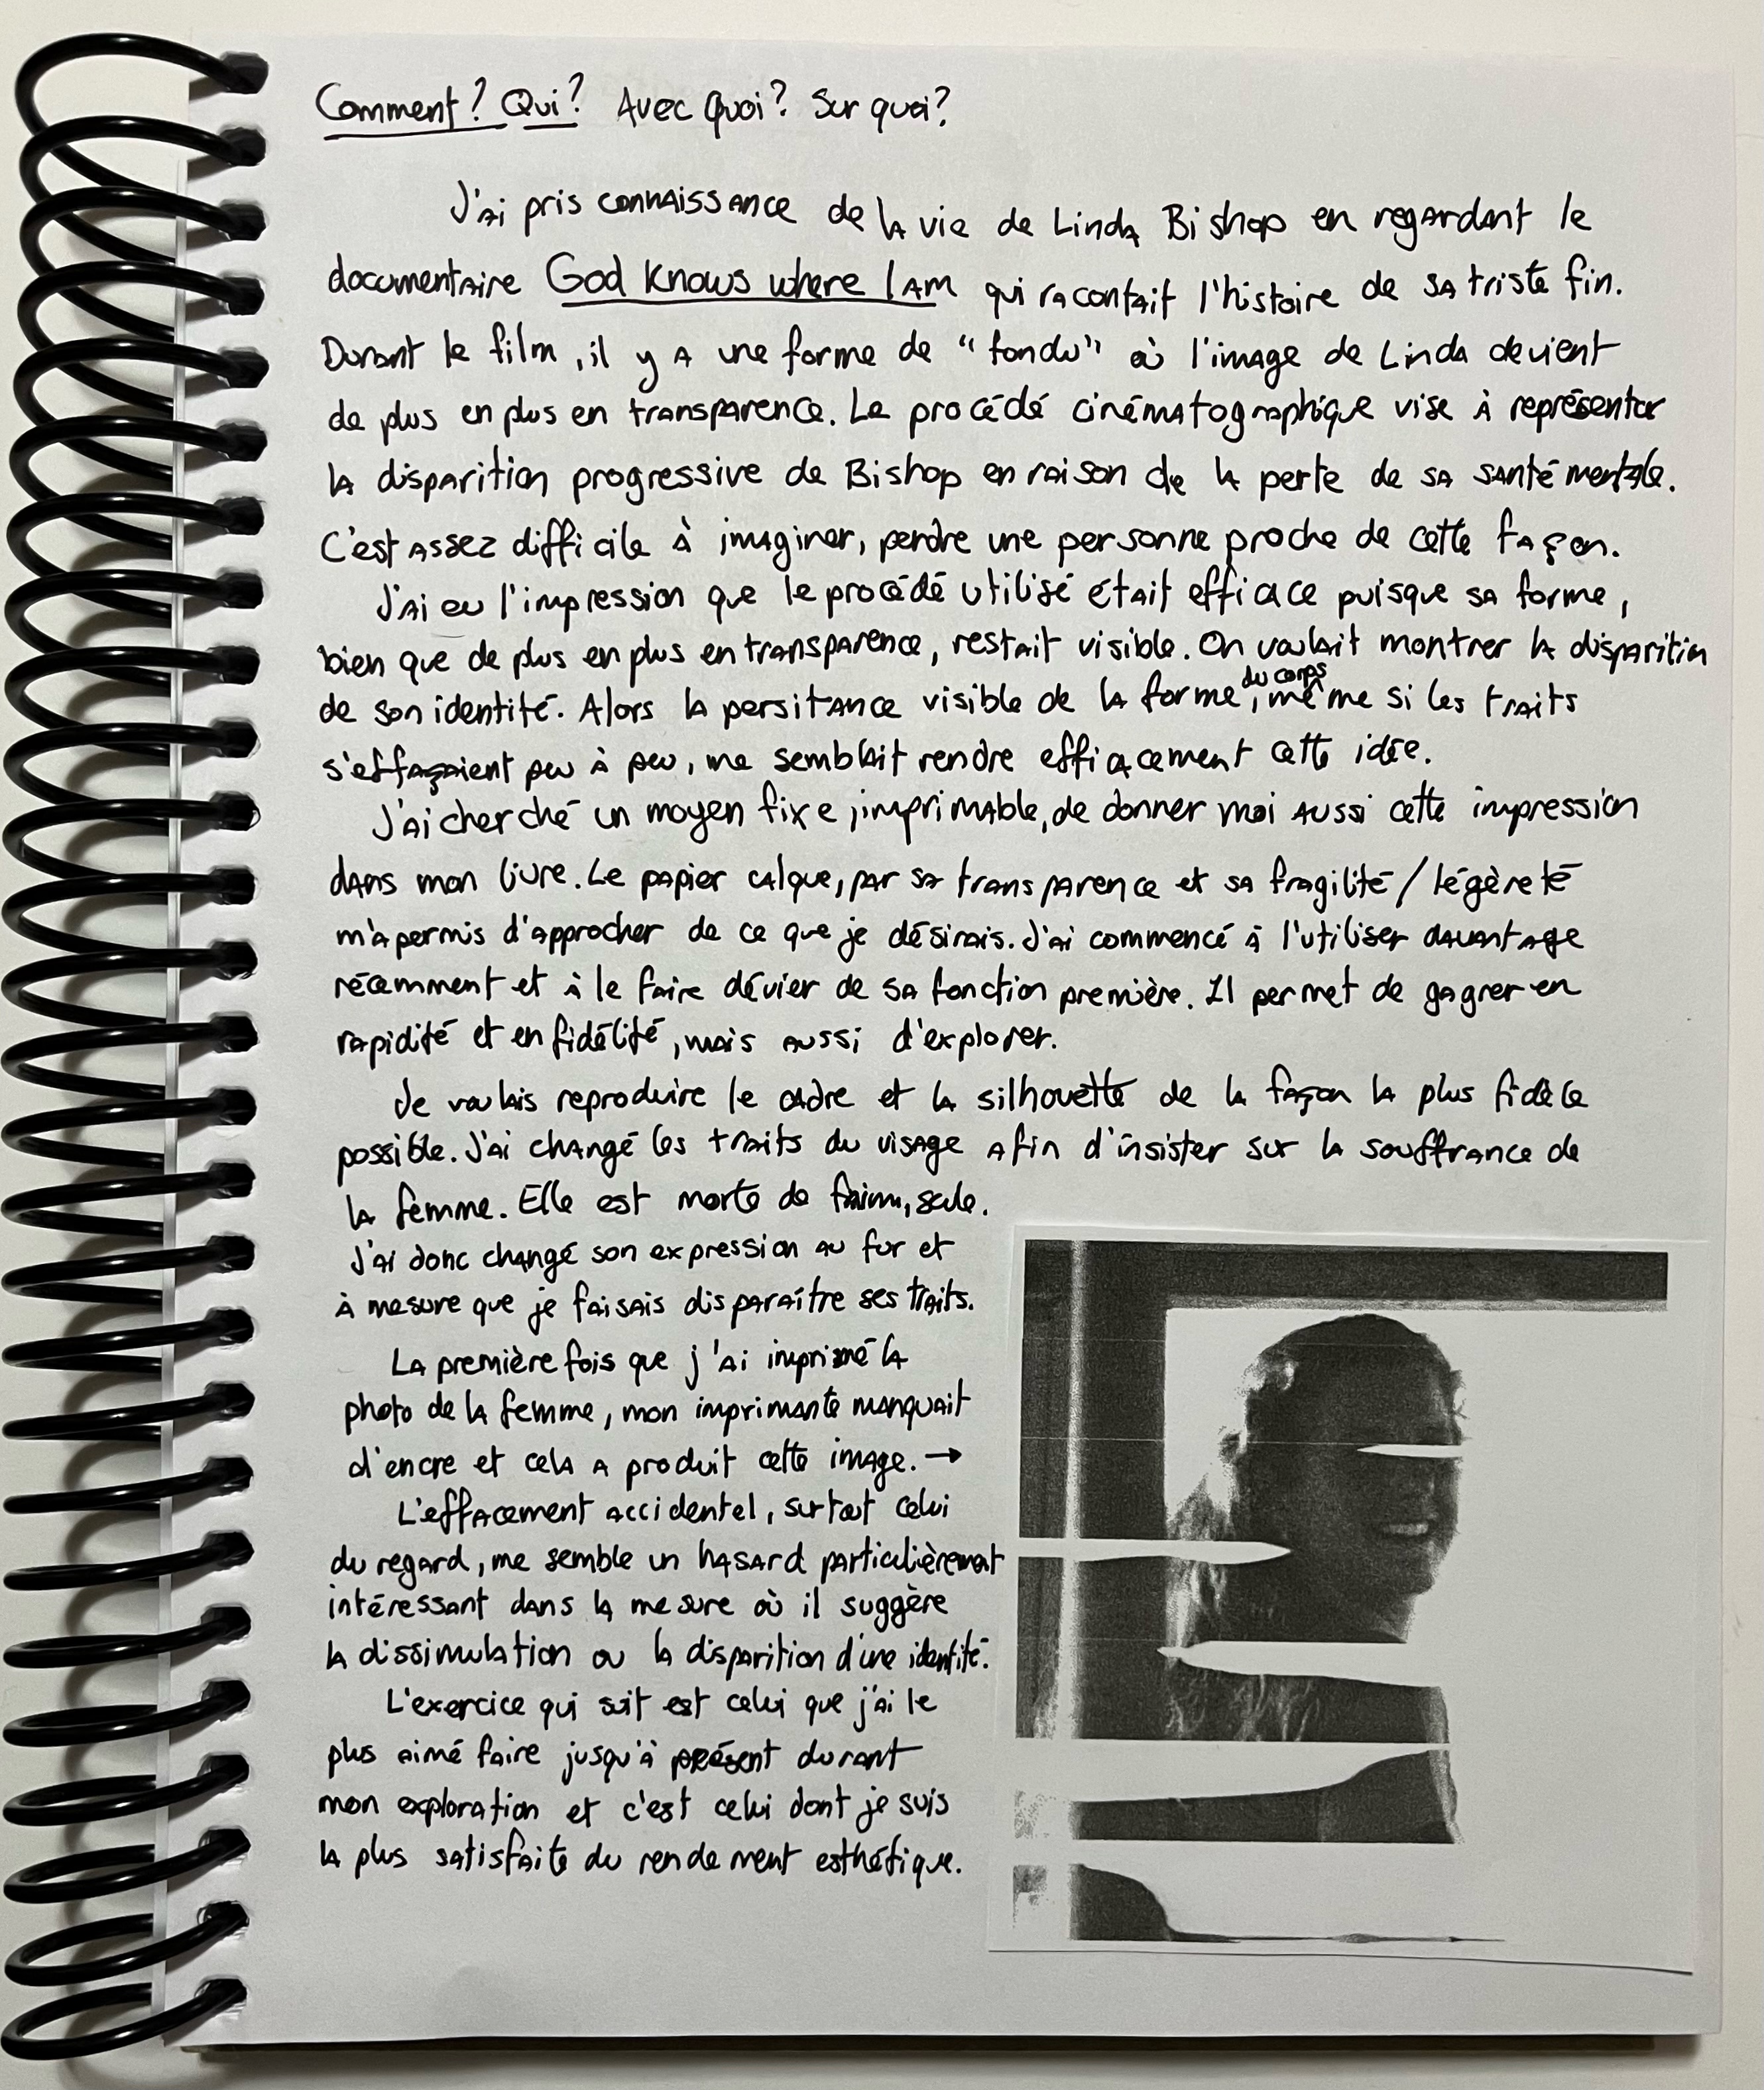 Comment? Qui? Avec Quoi? Sur quoi?
J'ai pris connaissance de la vie de Linda Bishop en regardant le
documentaire God Knows where I Am qui racontait l'histoire de sa triste fin.
Durant le film, il y a une forme de "fondu" où l'image de Linda devient
de plus en plus en transparence. Le procédé cinématographique vise à représenter
la disparition progressive de Bishop en raison de la perte de sa santé mentale.
C'est assez difficile à imaginer, perdre une personne proche de cette façon.
J'ai eu l'impression que le procédé utilisé était efficace puisque sa forme,
bien que de plus en plus en transparence, restait visible. On voulait montrer la disparition
de son identité. Alors la persitance visible de la forme du corps, même si les traits
s'effaçaient peu à peu, me semblait rendre efficacement cette idée.
J'ai cherché un moyen fixe, imprimable, de donner moi aussi cette impression
dans mon livre. Le papier calque, par sa transparence et sa fragilité/légèreté
m'a permis d'approcher de ce que je désirais. J'ai commencé à l'utiliser davantage
récemment et à le faire dévier de sa fonction première. Il permet de gagner en
rapidité et en fidélité, mais aussi d'explorer.
Je voulais reproduire le cadre et la silhouette de la façon la plus fidèle
possible. J'ai changé les traits du visage afin d'insister sur la souffrance de
la femme. Elle est morte de faim, seule.
J'ai donc changé son expression au fur et
à mesure que je faisais disparaître ses traits.
La première fois que j'ai imprimé la
photo de la femme, mon imprimante manquait
d'encre et cela a produit cette image. →
L'effacement accidentel, surtout celui
du regard, me semble un hasard particulièrement
intéressant dans la mesure où il suggère
la dissimulation ou la disparition d'une identité.
L'exercice qui suit est celui que j'ai le
plus aimé faire jusqu'à présent durant
mon exploration et c'est celui dont je suis
la plus satisfaite du rendement esthétique.